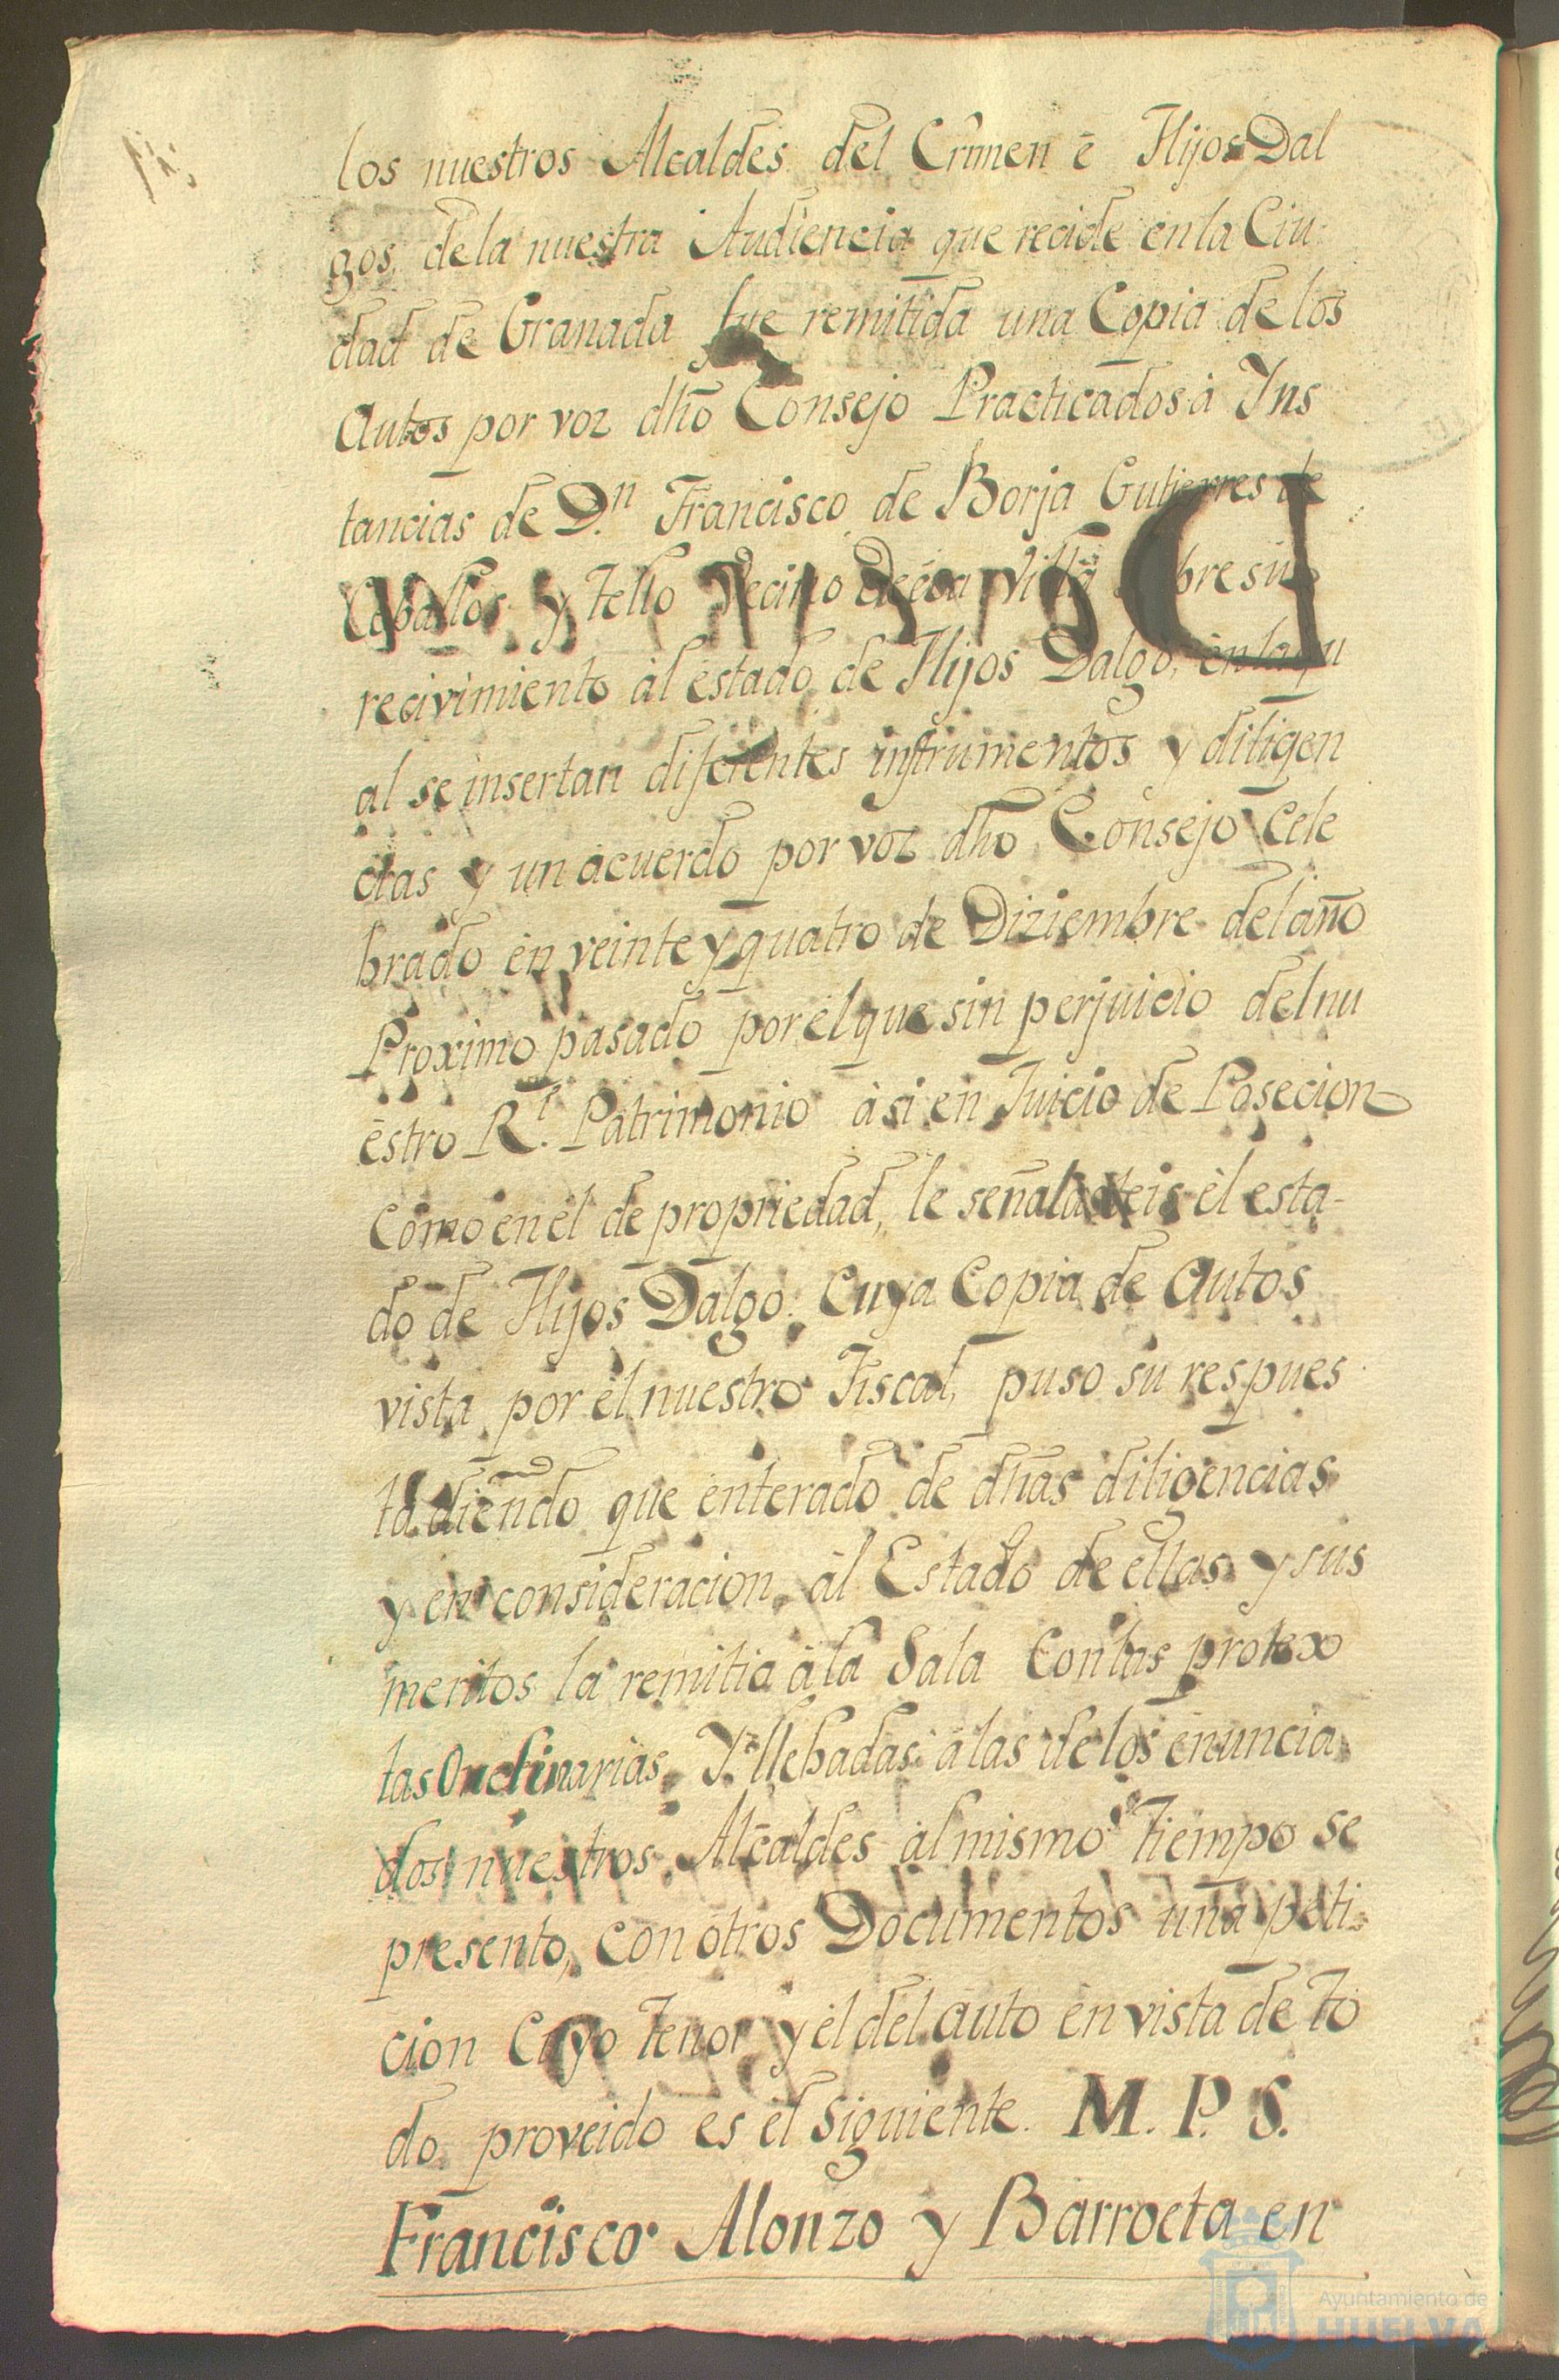 los nuestros Alcaldes del Crimen è Hijos Dal
gos de la nuestra Audiencia que recide en la Ciu
dad de Granada fue remitida una Copia de los
Autos por voz dho Consejo Practicados à Yns
tancias de D.n Francisco de Borja Gutierres de
Ceballos y Tello Vecino de esa Villa sobre sù
recivimiento àl èstado de Hijos Dalgo, en la qu
al se insertan diferentes instrumentos y diligen
cias y un acuerdo por voz dho Consejo Cele
brado èn veinte y quatro de Diziembre del año
Proximo pasado por èl que sin perjuicio del nu
èstro R.l Patrimonio àsi en Juicio de Posecion
Como en èl de propriedad, le señalasteis èl esta-
do de Hijos Dalgo: Cuya Copia de Autos
vista por èl nuestro Fiscal, puso su respues
ta diciendo que enterado de dhas diligencias
y en consideracion, àl Estado de ellas y sus
meritos la remitia à la Sala Con las protex
tas Ordinarias. Y llebadas à las de los ènuncia
dos nuestros Alcaldes àl mismo Tiempo se
presento, Con otros Documentos una peti
cion Cuyo Tenor y èl del auto èn vista de To
do proveido es èl Siguiente. M. P. S.
Francisco Alonzo y Barroeta en
Ayuntamiento de
HUELVA